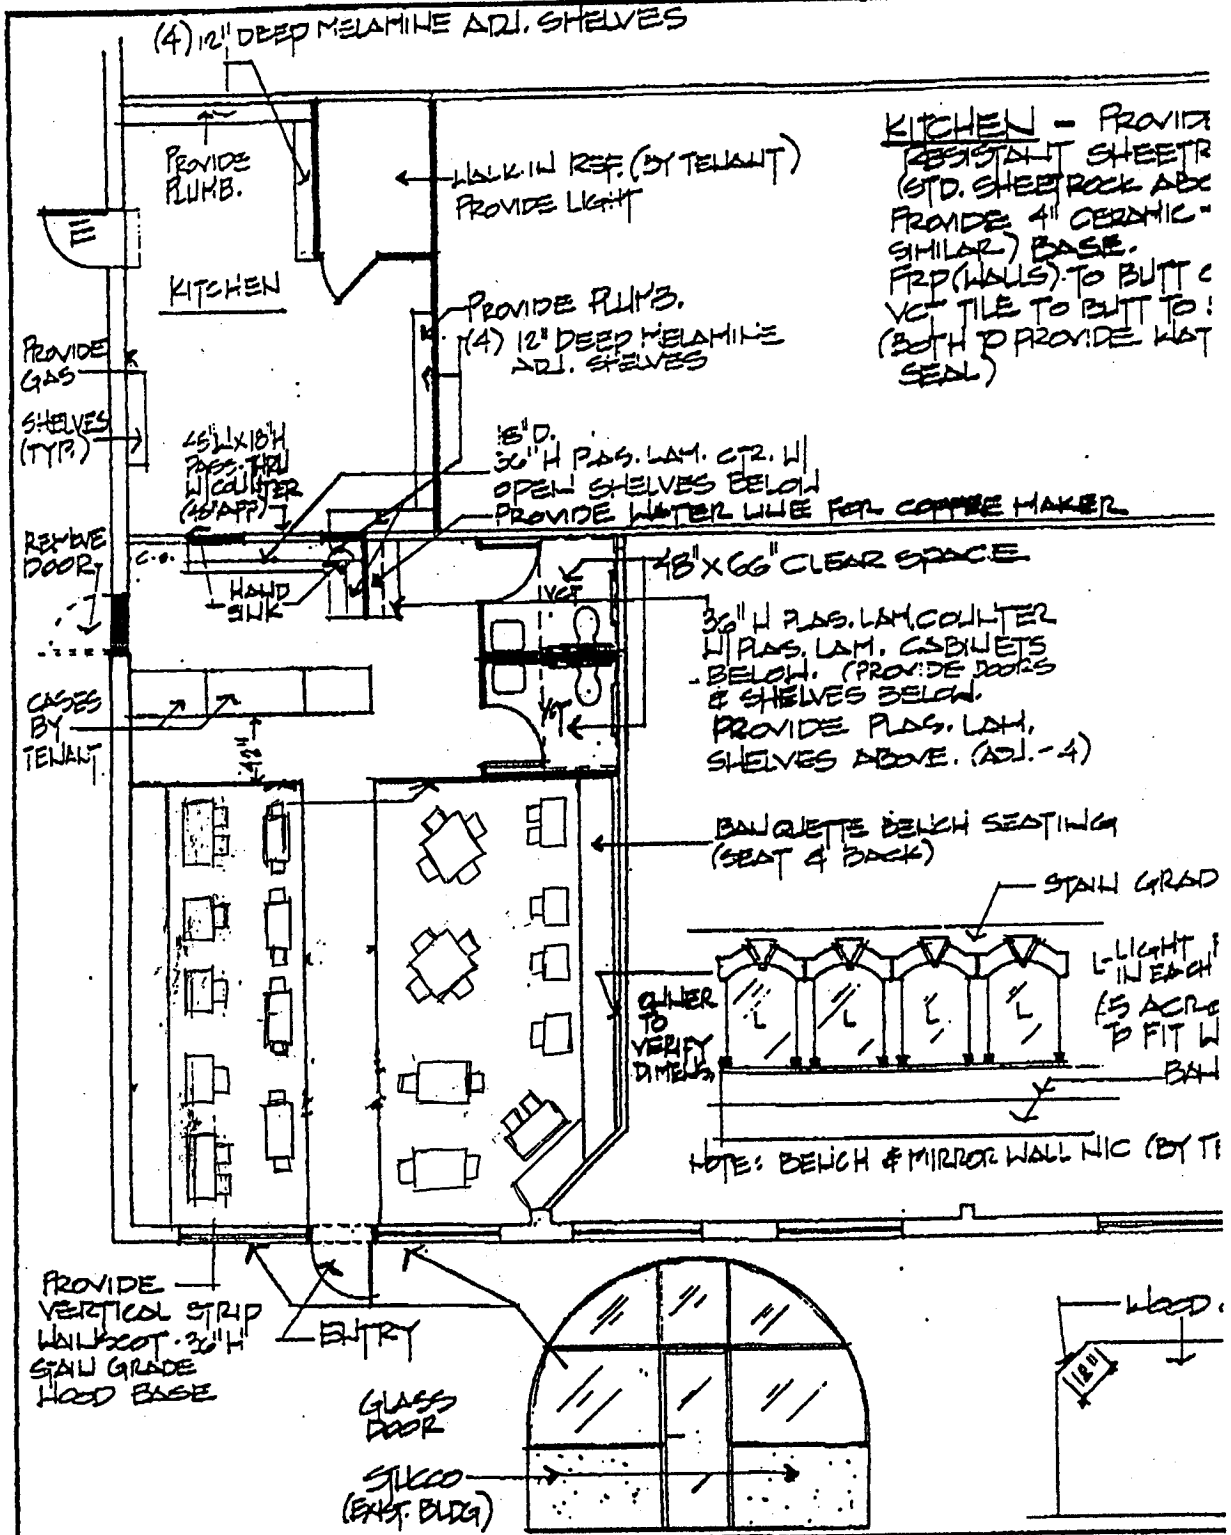 (4) 12" DEEP MELAMINE ADJ. SHELVES
PROVIDE
PLUMB.
WALK-IN REF. (BY TENANT)
PROVIDE LIGHT
KITCHEN - PROVIDE
RESISTANT SHEETR
(STD. SHEETROCK ABO
PROVIDE 4" CERAMIC
SIMILAR) BASE.
FRP (WALLS) TO BUTT
VCT TILE TO BUTT TO
(BOTH TO PROVIDE WAT
SEAL)
E
KITCHEN
PROVIDE PLUMB.
(4) 12" DEEP MELAMINE
ADJ. SHELVES
PROVIDE
GAS
SHELVES
(TYP.)
48"W X 18"H
PASS-THRU
W/COUNTER
(48" AFF)
18" D.
36" H PLAS. LAM. CTR. W/
OPEN SHELVES BELOW
PROVIDE WATER LINE FOR COFFEE MAKER
REMOVE
DOOR
C.O.
HAND
SINK
48" X 66" CLEAR SPACE
VCT
36" H PLAS. LAM. COUNTER
W/ PLAS. LAM. CABINETS
BELOW. (PROVIDE DOORS
& SHELVES BELOW.
PROVIDE PLAS. LAM.
SHELVES ABOVE. (ADJ. - 4)
VCT
CASES
BY
TENANT
42"
BANQUETTE BENCH SEATING
(SEAT & BACK)
STAIN GRAD
L-LIGHT
IN EACH
(5 ACRE
TO FIT W
BAN
L L L L
OWNER
TO
VERIFY
DIMENS.
NOTE: BENCH & MIRROR WALL NIC (BY TE
PROVIDE
VERTICAL STRIP
WAINSCOT - 36" H
STAIN GRADE
WOOD BASE
ENTRY
GLASS
DOOR
STUCCO
(EXIST. BLDG)
WOOD
18"